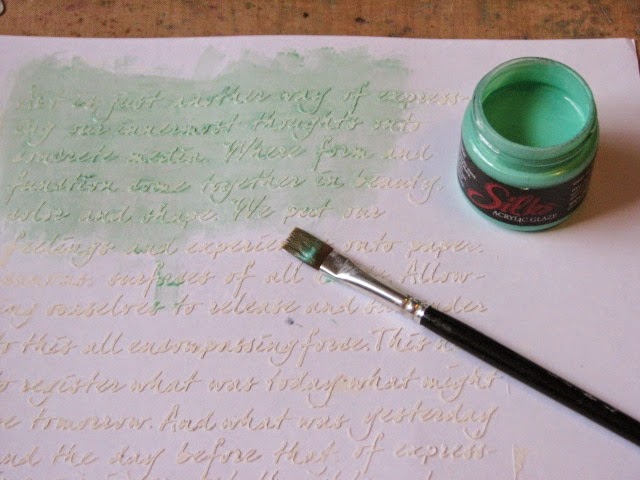 Art is just another way of express-
ing our innermost thoughts onto
concrete media. Where form and
function come together in beauty,
color and shape. We put our
feelings and onto paper
canvas. surfaces of all Allow-
ng ourselves to release and
to this all encompassing force. This
o register what was today what might
e tomorrow. And what was yesterday
and the day before that of express-
Silks
ACRYLIC GLAZE